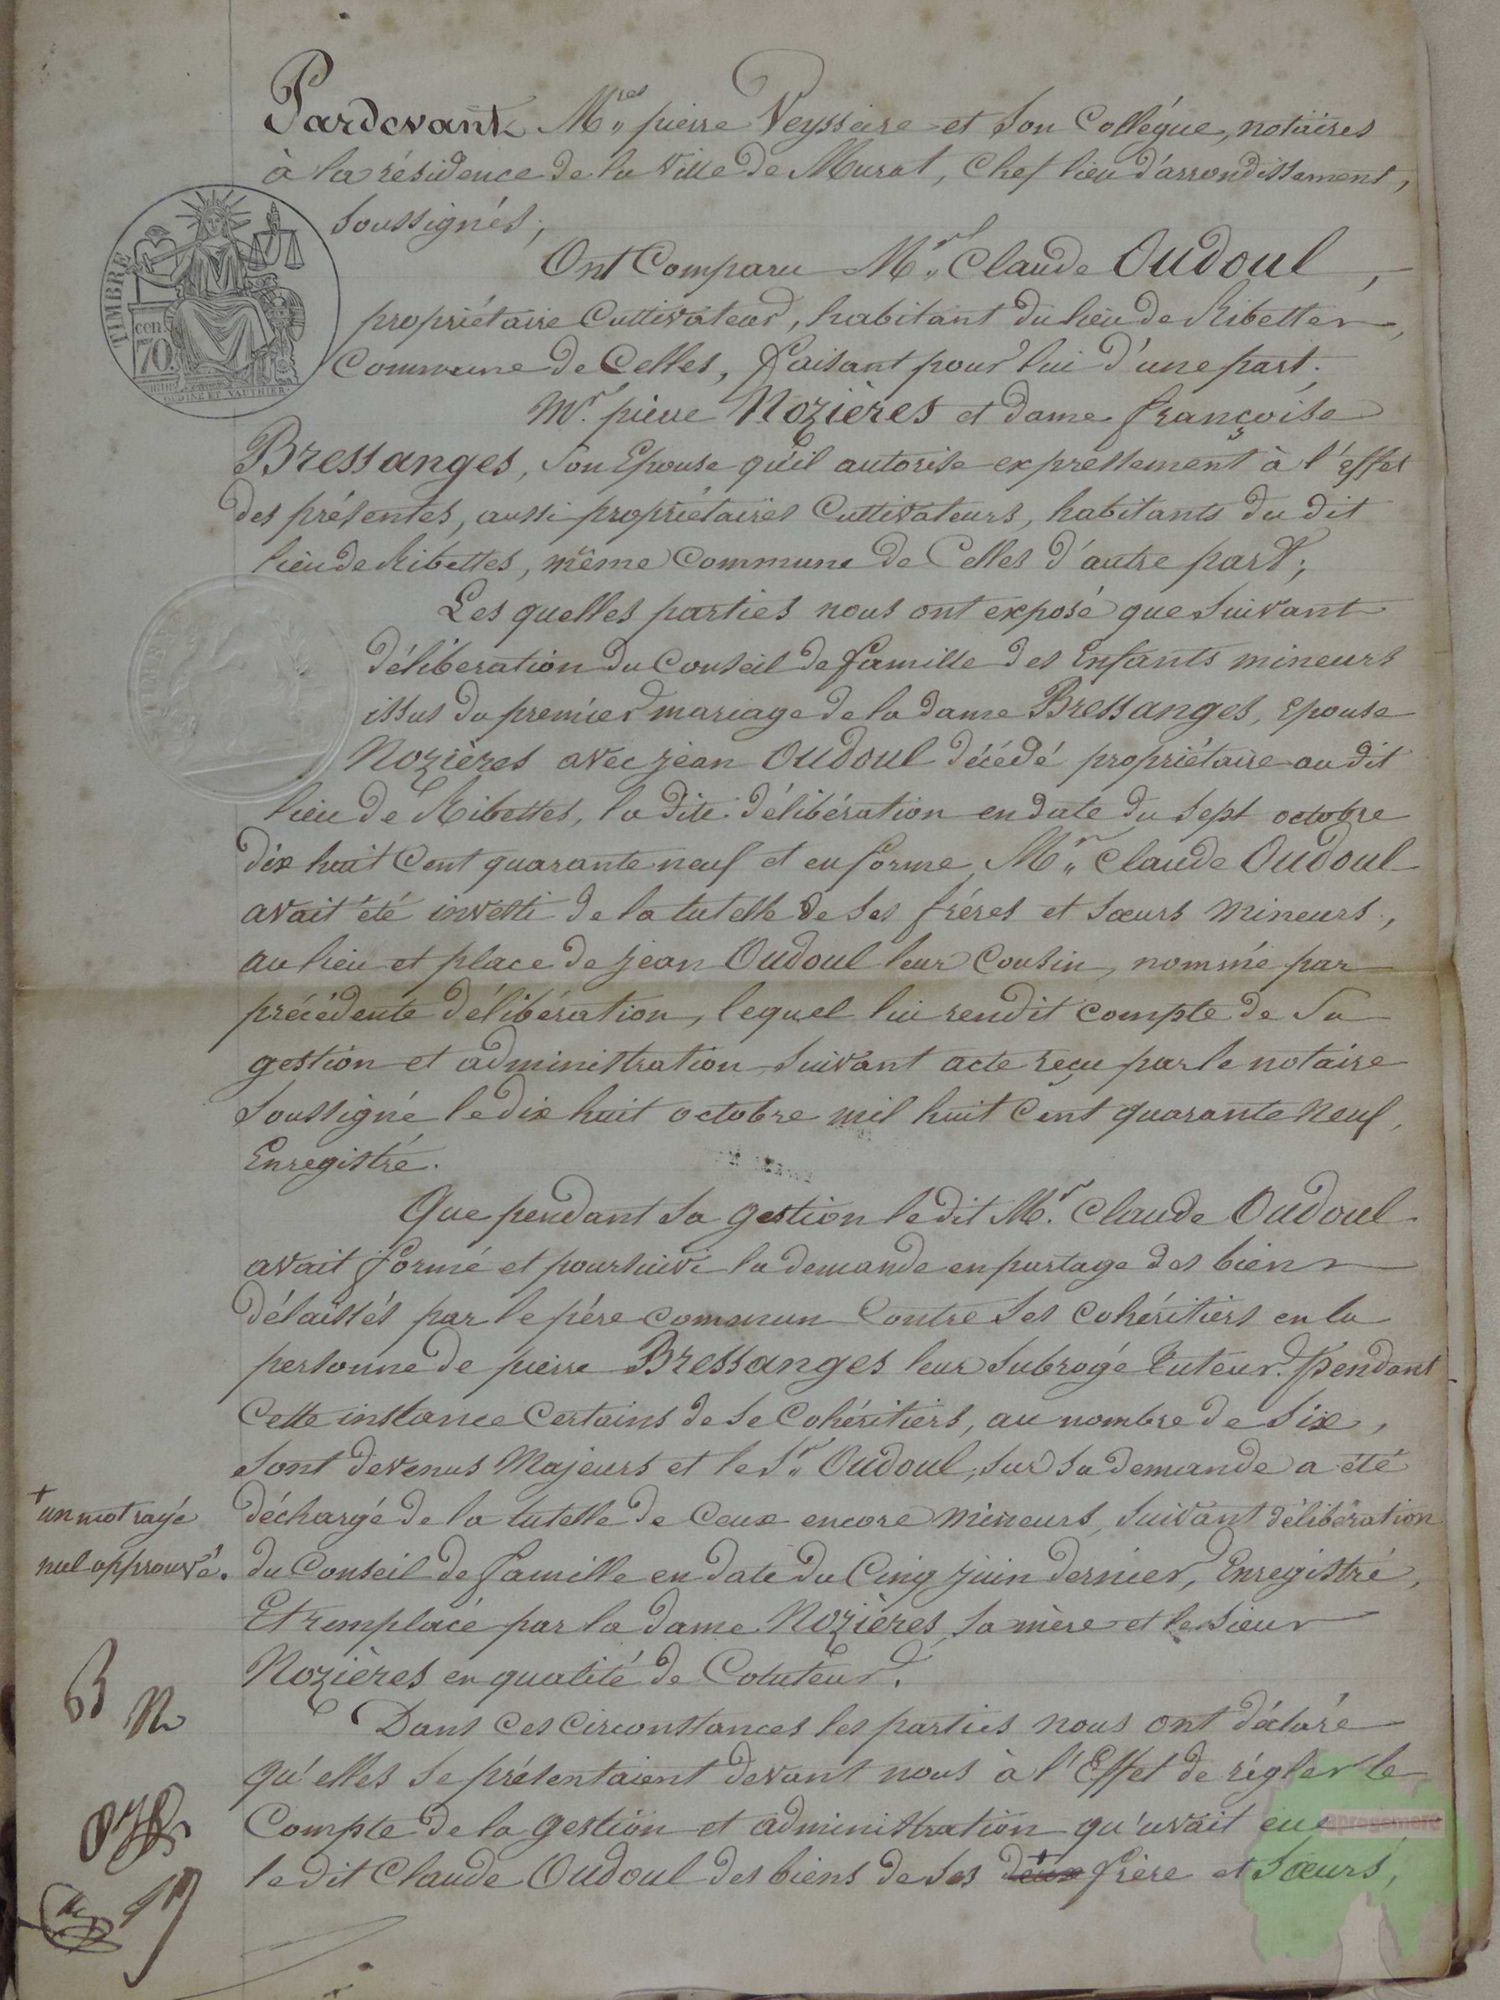 Pardevant Mres pierre Veysseire et son Collégue, notaires
à la résidence de la ville de Murat, Chef lieu d'arrondissement,
soussignés;
Ont Comparu Mr. Claude Oudoul,
propriétaire Cultivateur, habitant du lieu de Ribettes,
Commune de Celles, faisant pour lui d'une part.
Mr. pierre Nozières et dame françoise
Bressanges, son Epouse qu'il autorise expressement à l'effet
des présentes, aussi propriétaires Cultivateurs, habitants du dit
lieu de Ribettes, même Commune de Celles d'autre part;
Les quelles parties nous ont exposé que suivant
délibération du Conseil de famille des Enfants mineurs
issus du premier mariage de la dame Bressanges, Epouse
Nozières avec jean Oudoul décédé propriétaire au dit
lieu de Ribettes, la dite délibération en date du sept octobre
dix huit Cent quarante neuf et en forme, Mr. Claude Oudoul
avait été investi de la tutelle de ses fréres et sœurs mineurs,
au lieu et place de jean Oudoul leur Cousin, nommé par
précédente délibération, lequel lui rendit compte de sa
gestion et administration suivant acte reçu par le notaire
soussigné le dix huit octobre mil huit Cent quarante neuf,
Enregistré.
Que pendant sa gestion le dit Mr. Claude Oudoul
avait formé et poursuivi la demande en partage des biens
délaissés par le pére commun Contre ses cohéritiers en la
personne de pierre Bressanges leur subrogé tuteur. Pendant
Cette instance Certains de se Cohéritiers, au nombre de six,
sont devenus Majeurs et le Sr. Oudoul, sur sa demande a été
déchargé de la tutelle de Ceux encore mineurs, suivant délibération
du Conseil de famille en date du Cinq juin dernier, Enregistré,
Et remplacé par la dame Nozières, sa mère et le sieur
Nozières en qualité de Cotuteur.
Dans Ces Circonstances les parties nous ont déclaré
qu'elles se présentaient devant nous à l'Effet de régler le
Compte de la gestion et administration qu'avait eue
le dit Claude Oudoul des biens de ses deux frère et sœurs,
+
un mot rayé
nul approuvé.
B N
TIMBRE
cen.
70
OUDINÉ ET VAUTHIER
apregemere